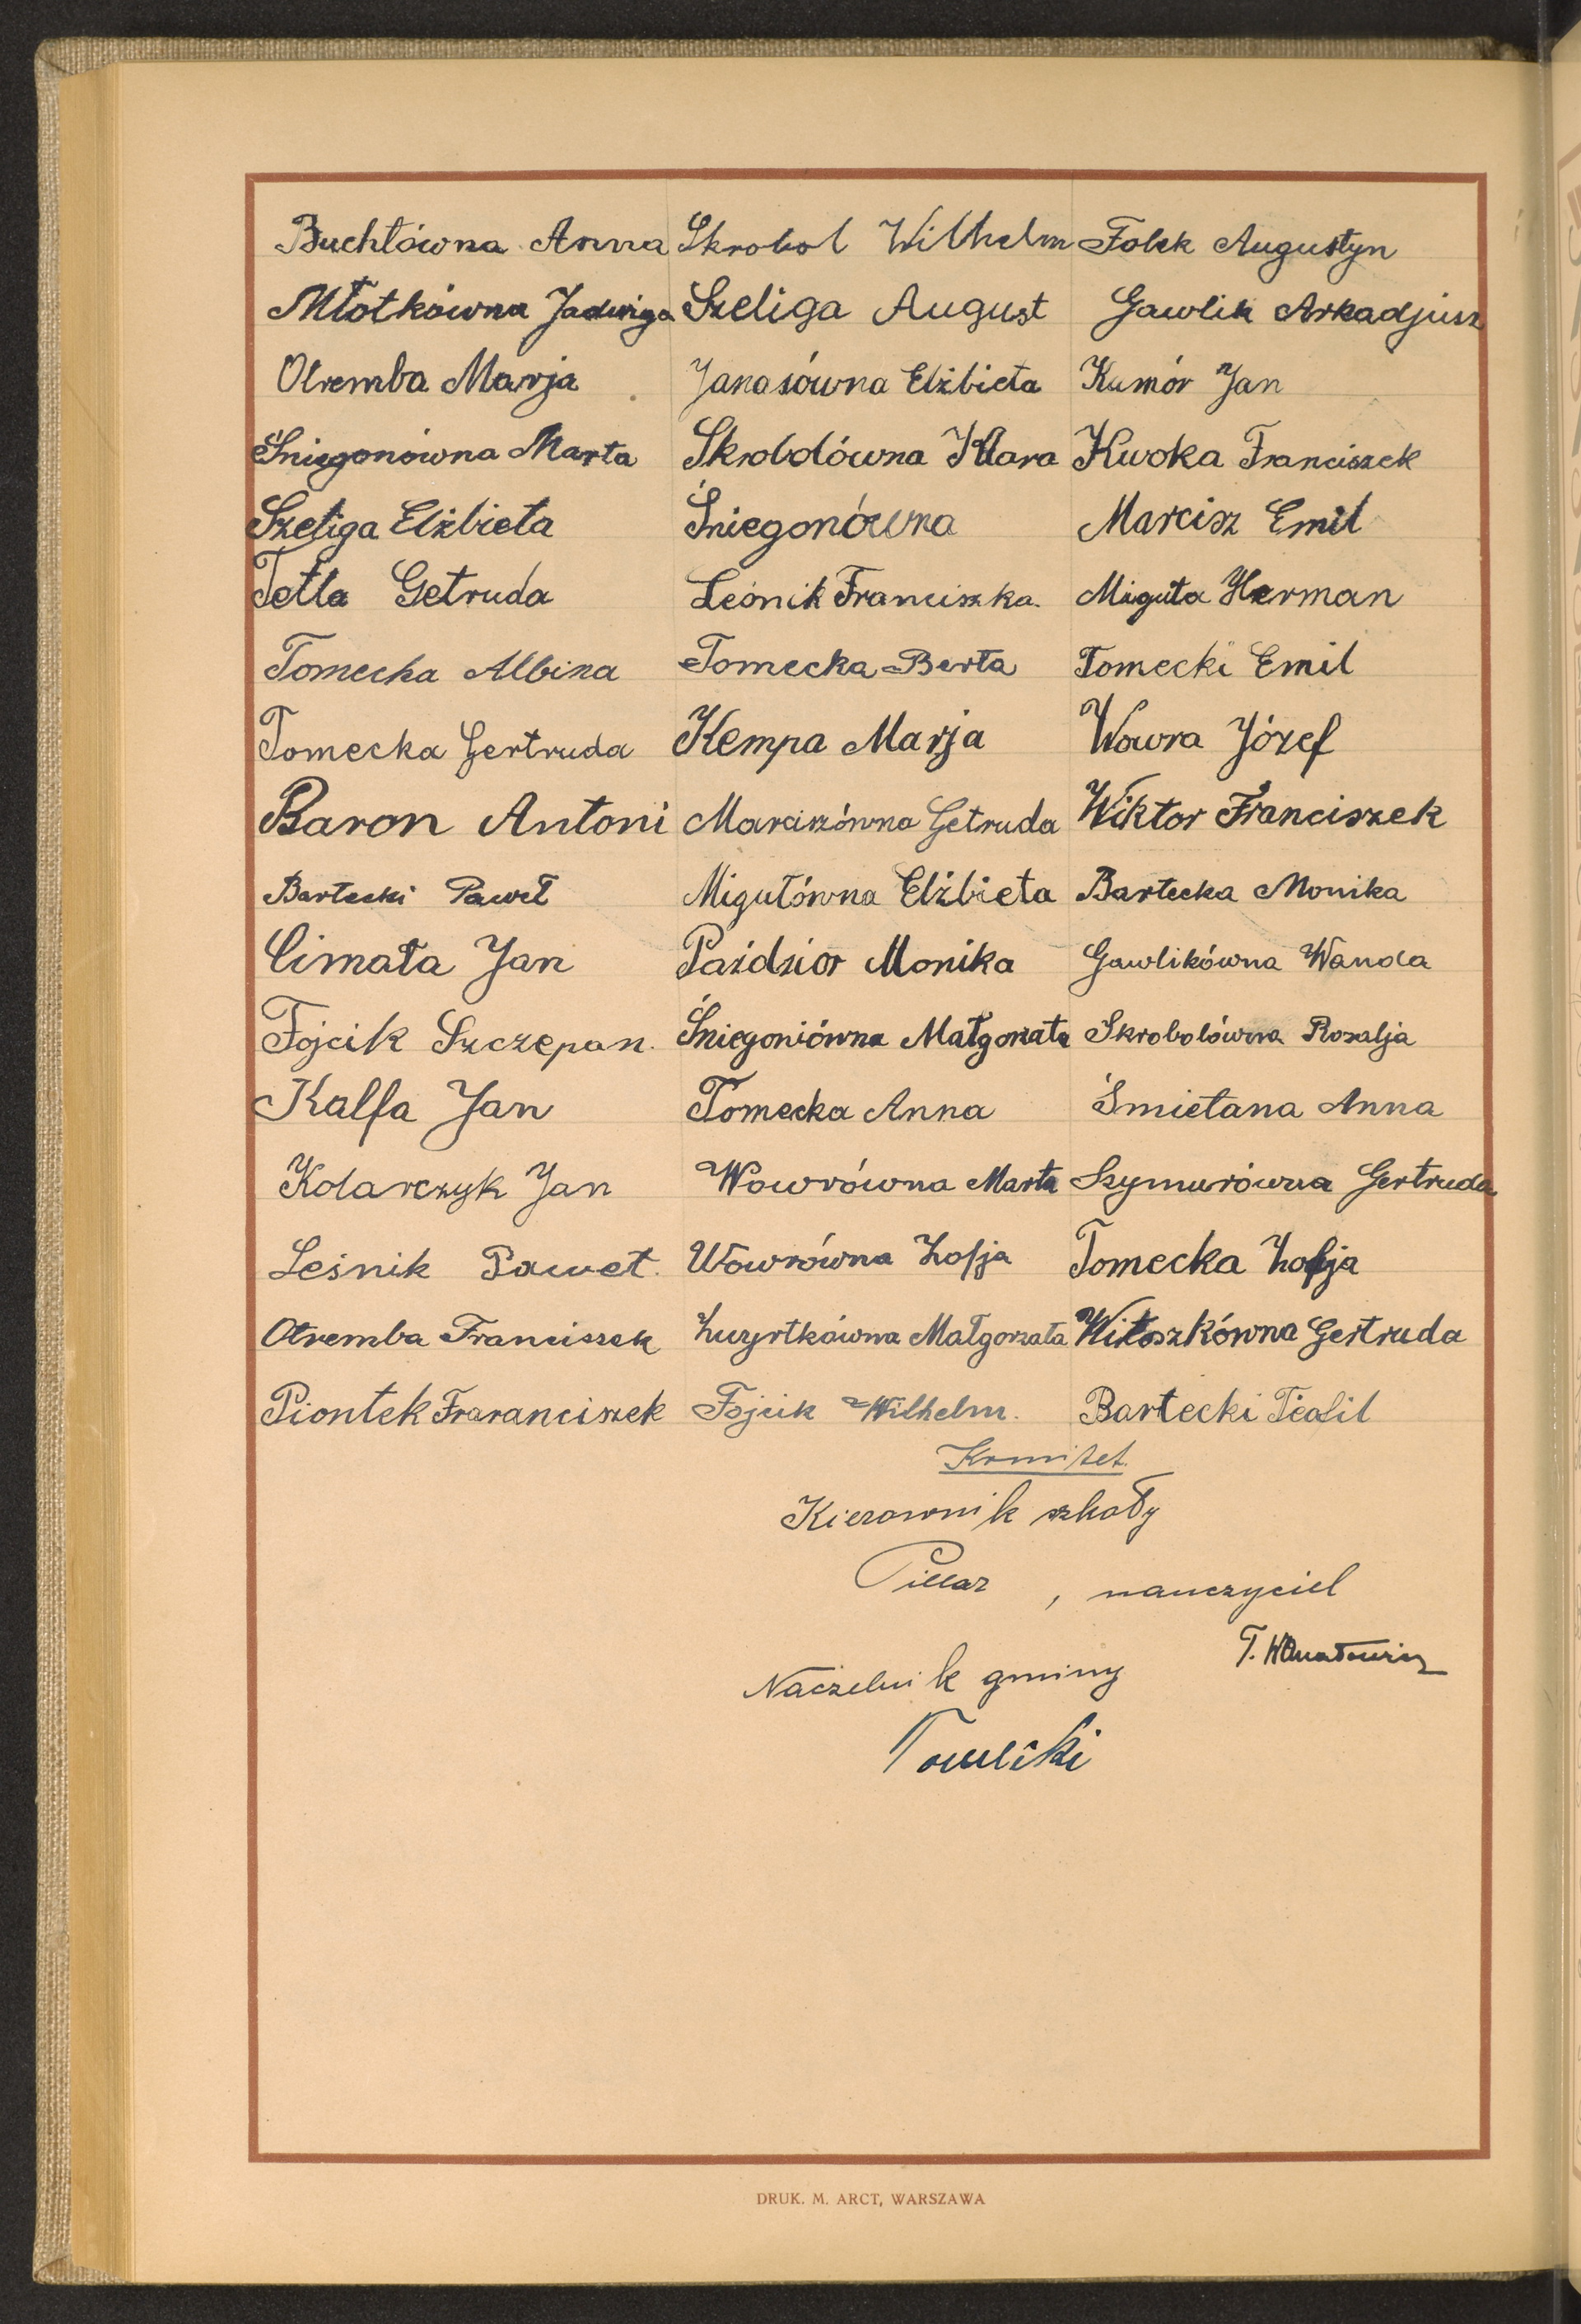 Buchtówna Anna Skrobol Wilhelm Folek Augustyn
Młotkówna Jadwiga Szeliga August Gawlik Arkadjusz
Otremba Marja Janasówna Elżbieta Kumór Jan
Śniegonówna Marta Skrobolówna Klara Kwoka Franciszek
Szeliga Elżbieta Śniegonówna Marcisz Emil
Tetla Getruda Leśnik Franciszka. Miguła Herman
Tomecka Albina Tomecka Berta Tomecki Emil
Tomecka Gertruda Kempa Marja Wowra Józef
Baron Antoni Marciszówna Getruda Wiktor Franciszek
Bartecki Paweł Migułówna Elżbieta Bartecka Monika
Cimała Jan Paździor Monika Gawlikówna Wanda
Fojcik Szczepan. Śniegoniówna Małgorzata Skrobolówna Rozalja
Kalfa Jan Tomecka Anna Śmietana Anna
Kolarczyk Jan Wowrówna Marta Szymurówna Gertruda
Leśnik Paweł. Wowrówna Zofja Tomecka Zofja
Otremba Franciszek Żwyrtkówna Małgorzata Witoszkówna Gertruda
Piontek Fraranciszek Fojcik Wilhelm. Bartecki Teofil
Komitet.
Kierownik szkoły
Pillar, nauczyciel
T.
Naczelnik gminy
DRUK. M. ARCT, WARSZAWA